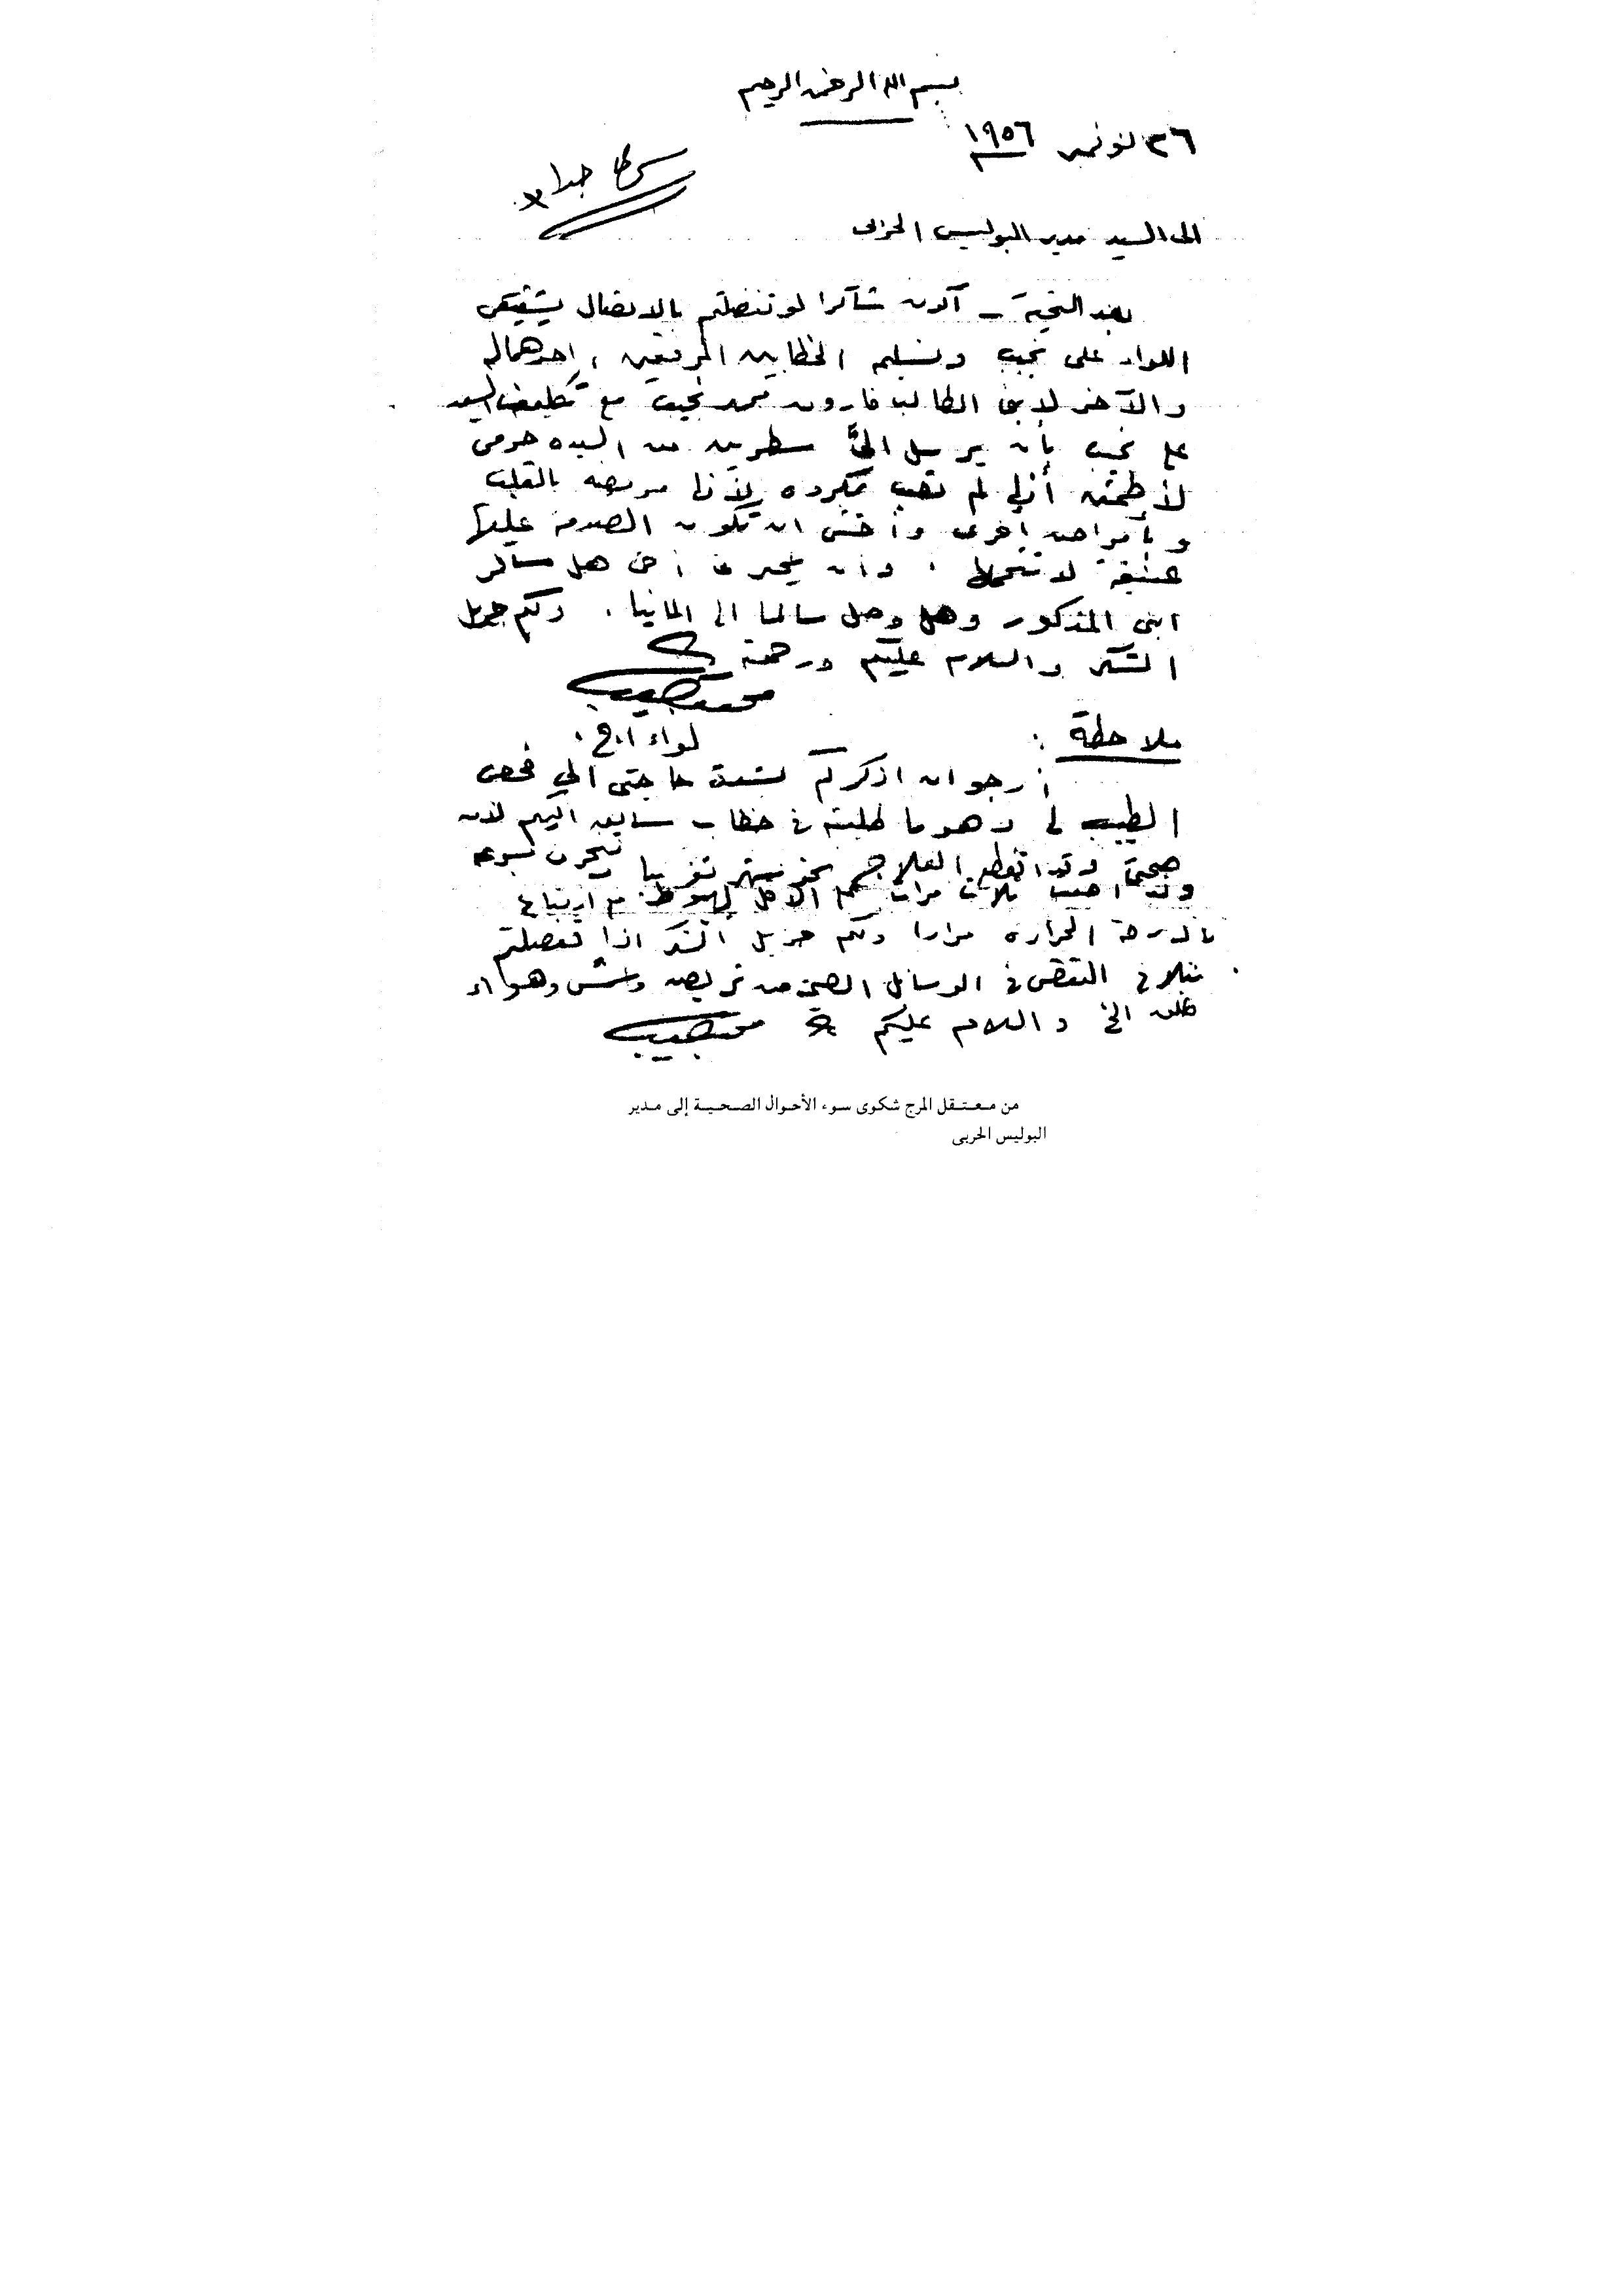 بسم الله الرحمن الرحيم
٢٦ نوفمبر ١٩٥٦
سرى جدا
الى السيد مدير البوليس الحربى
بعد التحية – أكون شاكرا لو تفضلتم بالاتصال بشقيقى
اللواء على نجيب وتسليم الخطابين المرفقين، احدهما له
والآخر لابنى الطالب فاروق محمد نجيب مع تكليف السيد
على نجيب بأن يرسل الىَّ سطرين من السيده حرمى
لأطمئن أنها لم تصب بمكروه لأنها مريضه بالقلب
وبأمراض أخرى وأخشى ان تكون الصدمة عليها
عنيفة لا تتحملها، وأن يخبرنا أخى هل سافر
ابنى المذكور وهل وصل سالما الى المانيا. ولكم جزيل
الشكر والسلام عليكم ورحمة الله
محمد نجيب
لواء ا.ح.
ملاحظة:
أرجو ان اذكركم بشدة حاجتى الى فحص
الطبيب لى وهو ما طلبته فى خطاب سابق اليكم لأن
صحتى وقد انقطع العلاج نحو شهر تقريبا
وقد اصبت ثلاث مرات على الأقل بهبوط مع ارتفاع
بالدرجة الحراره مرارا ولكم جزيل الشكر اذا تفضلتم
بتلافى النقص فى الوسائل الصحية من تريض وشمس وهواء
طلق الخ والسلام عليكم محمد نجيب
من معتقل المرج شكوى سوء الأحوال الصحية إلى مدير
البوليس الحربى